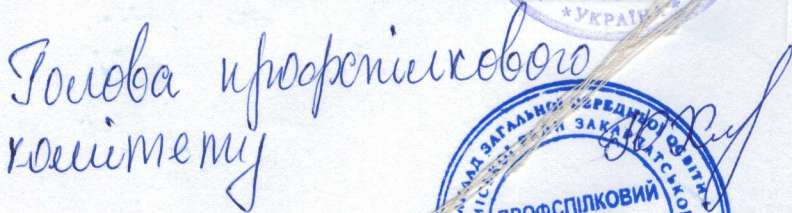 УКРАЇН
Голова профспілкового
комітету
ЗАКЛАД ЗАГАЛЬНОЇ СЕРЕДНЬОЇ ОСВІТИ
МІСЬКОЇ РАДИ ЗАКАРПАТСЬКОЇ
ПРОФСПІЛКОВИЙ